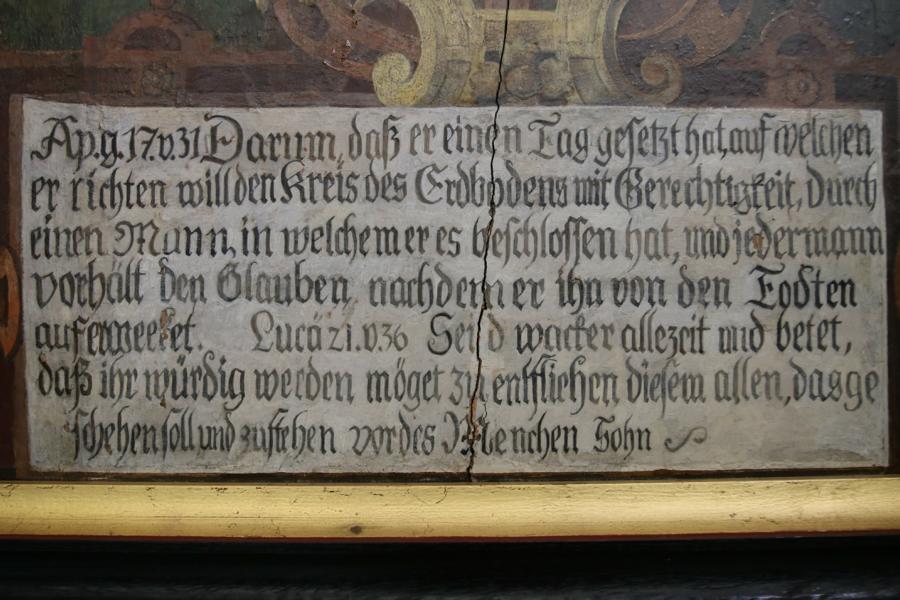 Ap.g. 17.v.31 Darum, daß er einen Tag gesetzt hat, auf welchen
er richten will den Kreis des Erdbodens mit Gerechtigkeit, Durch
einen Mann, in welchem er es beschlossen hat, und jedermann
vorhält den Glauben, nachdem er ihn von den Todten
auferwecket. Lucä 21.v.36 Seid wacker allezeit und betet,
daß ihr würdig werden möget zu entfliehen diesem allen, das ge
schehen soll und zu stehen vor des Menchen Sohn